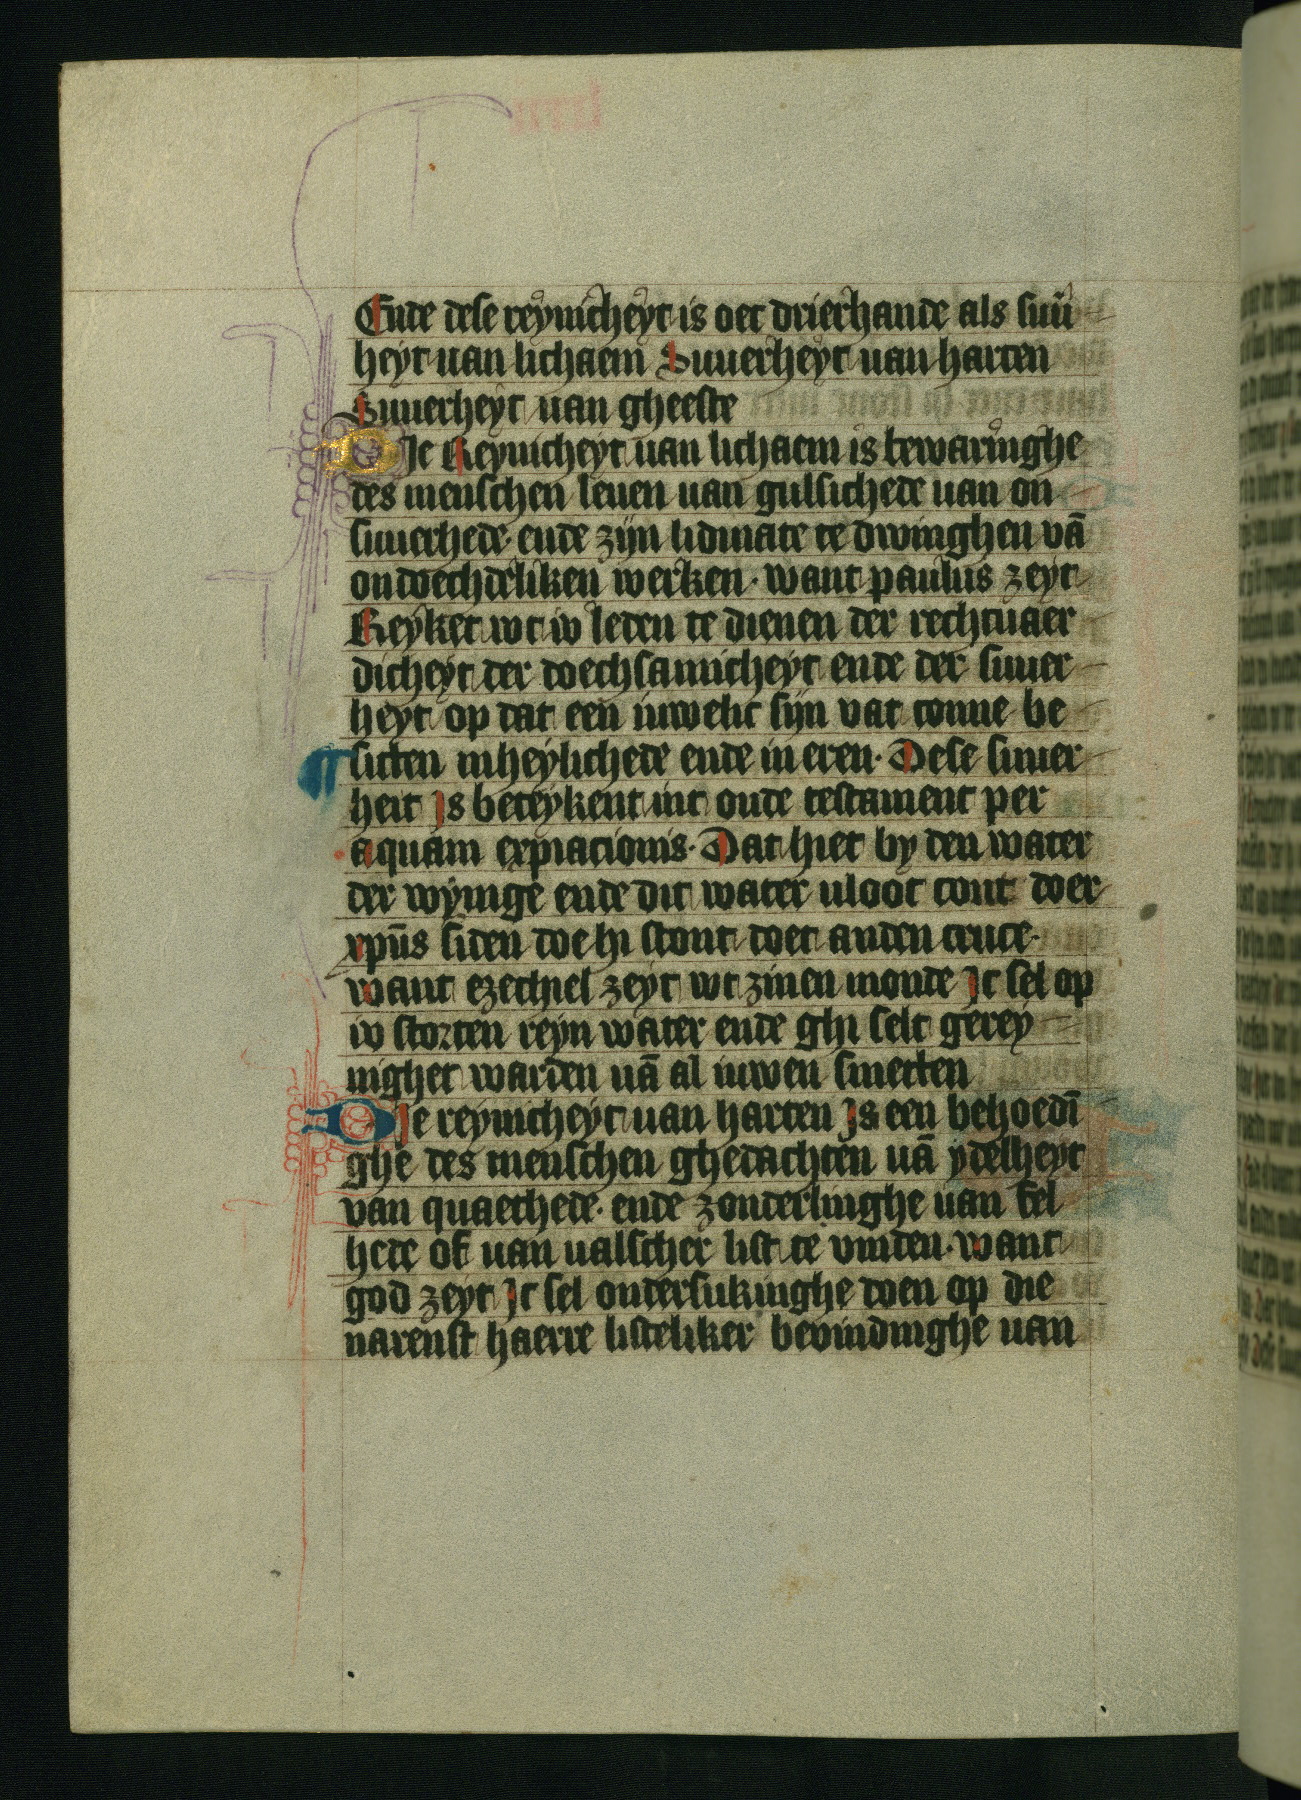 Ende dese reynicheyt is oec drierhande als suū
heyt van lichaem Suuerheyt van harten
Suuerheyt van gheeste
DJe Reynicheyt van lichaem is bewaringhe
des menschen leuen van gulsichede van on
suuerhede· ende zijn lidmate te dwinghen vā
ondoechdeliken werken· want paulus zeyt
Reyket wt iv leden te dienen der rechtuaer
dicheyt der doechsamicheyt ende der suuer
heyt op dat een iuwelic sijn vat conne be
sitten in heylichede ende in eren· Dese suuer
heit Js beteykent int oude testament per
aquam expiacionis· Dat hiet by den water
der wyinge ende dit water uloot cont doer
xpūs siden doe hi stont doet anden cruce·
want ezechiel zeyt wt zinen monde Jc sel op
iv storten reyn water ende ghi selt gerey
nighet warden uā al iuwen smetten
DJe reynicheyt van harten Js een behoedī
ghe des menschen ghedachten uā ydelheyt
van quaethede· ende zonderlinghe van fel
hede of van valscher list te vinden· want
god zeyt Jc sel ondersukinghe doen op die
narenst haerre listeliker bevindinghe van